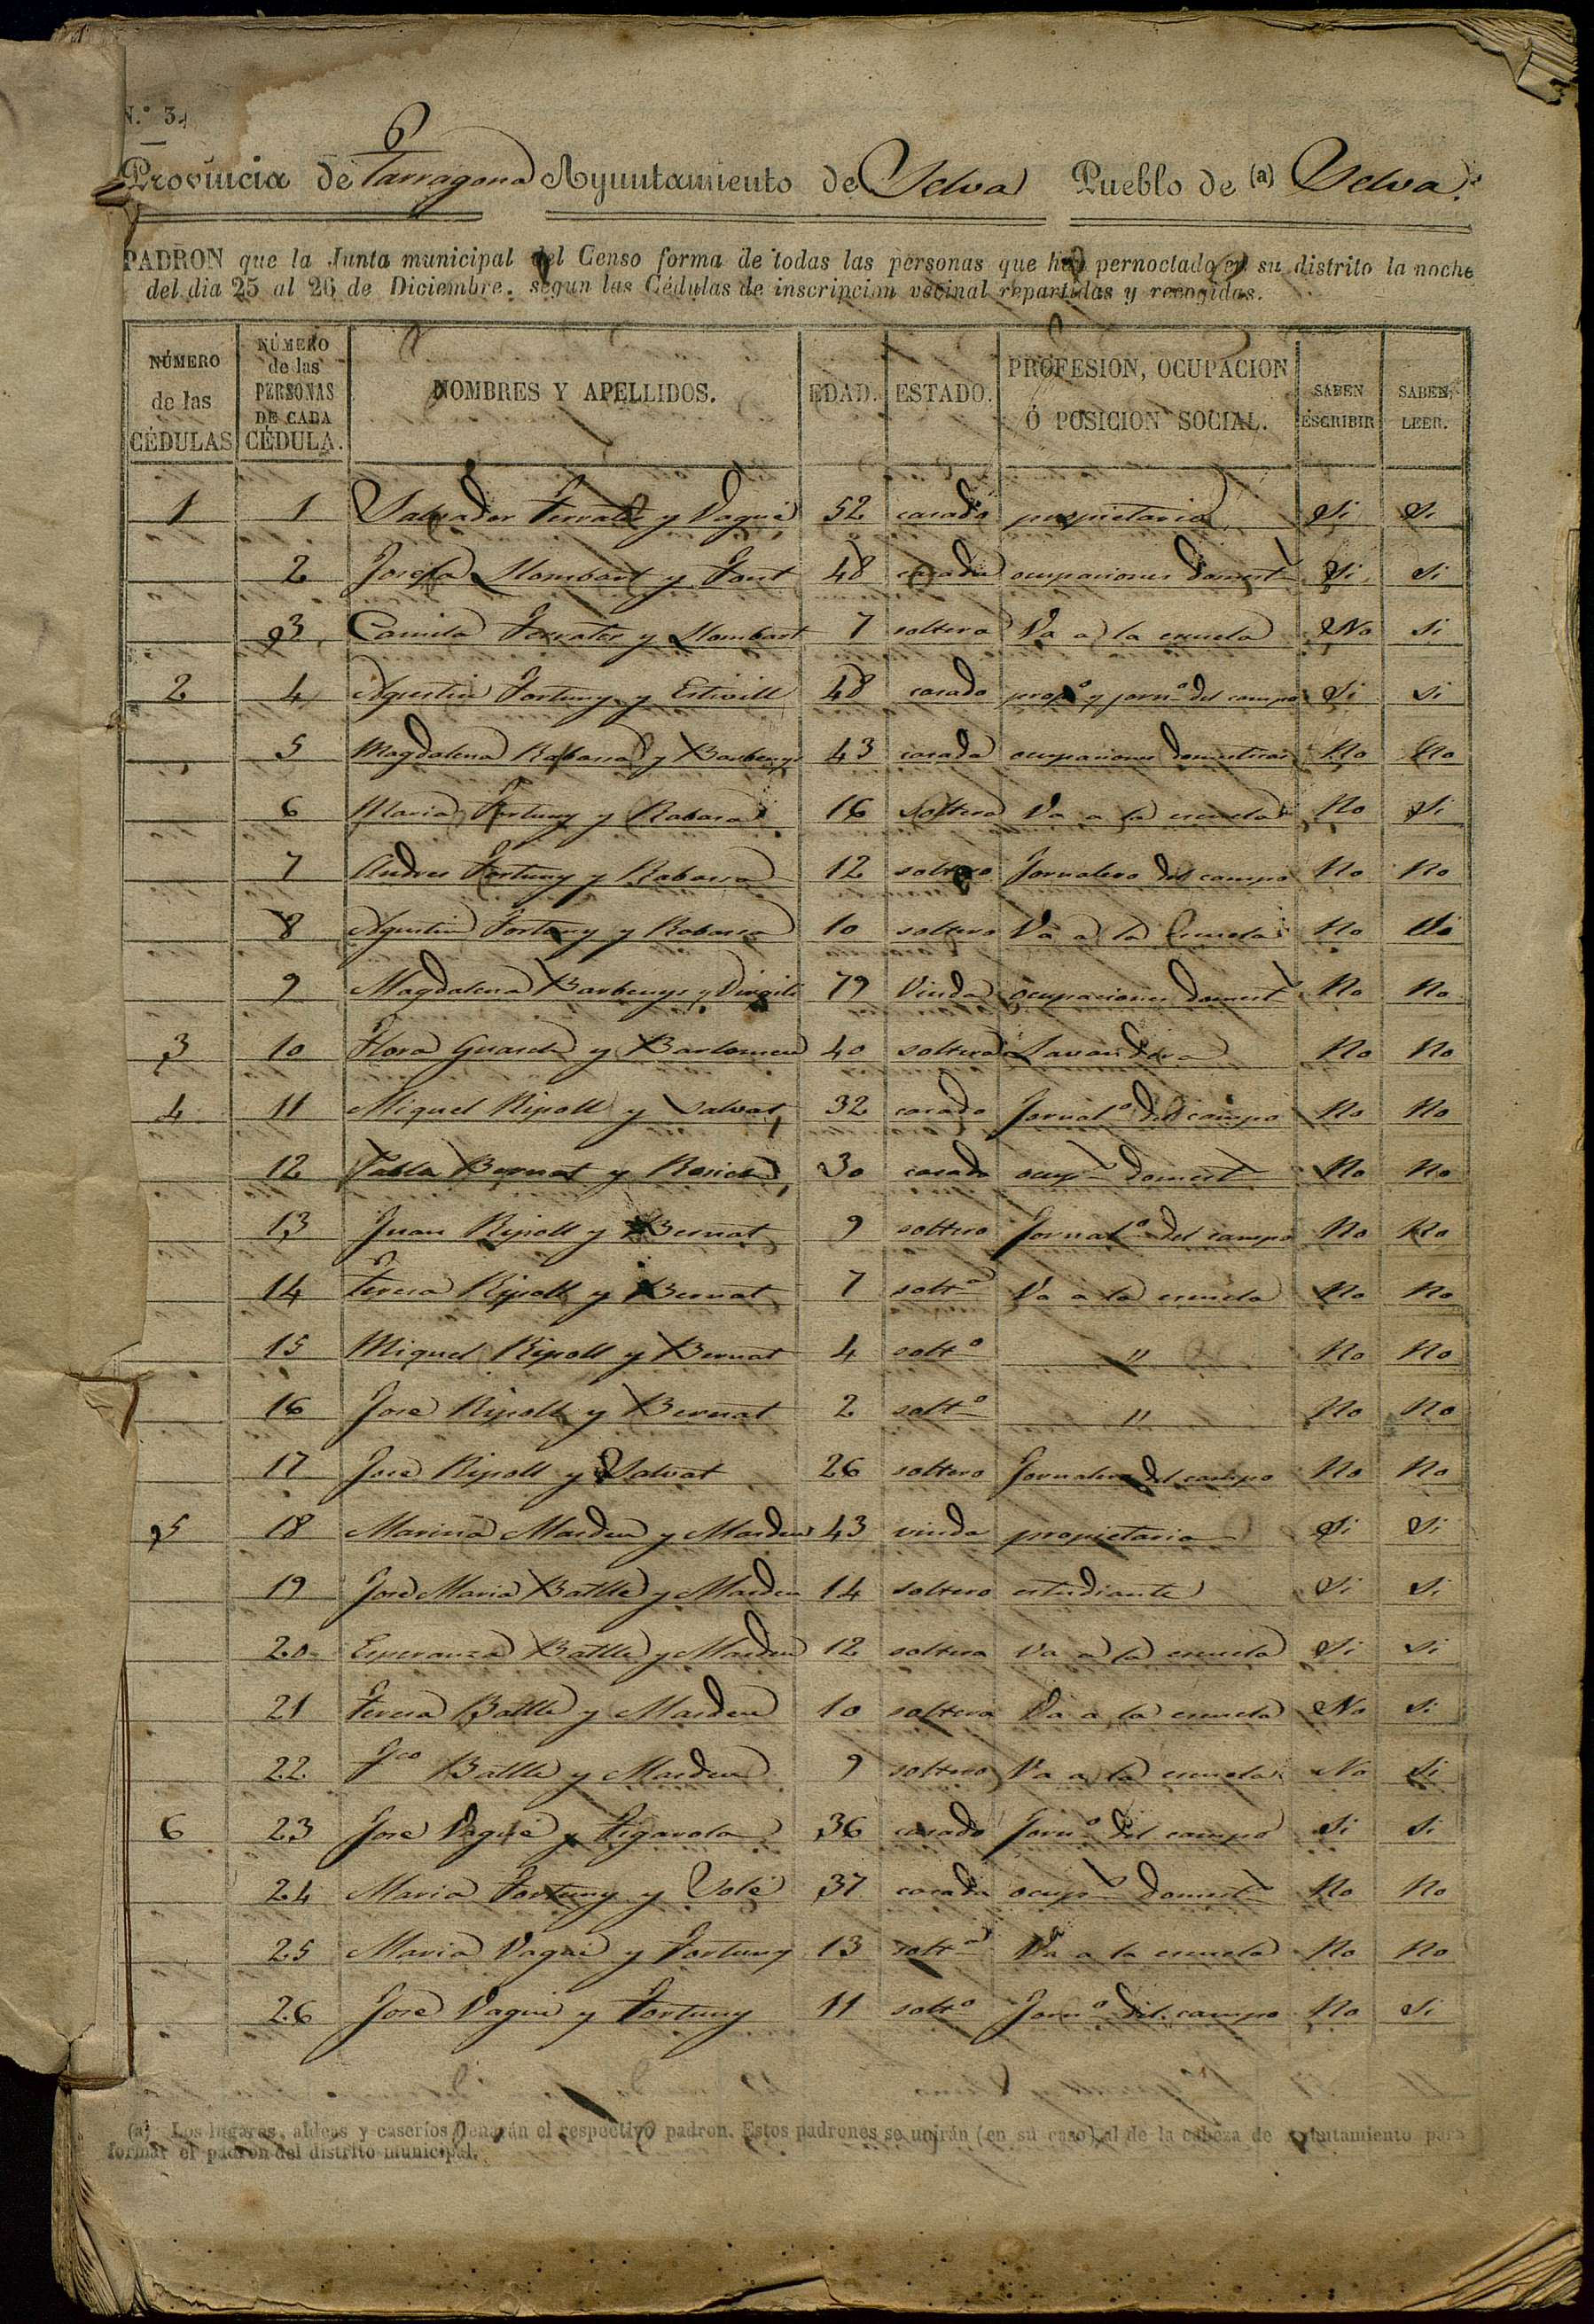 N.º 3.
Provincia de Tarragona Ayuntamiento de Selva Pueblo de (a) Selva.
PADRON que la Junta municipal del Censo forma de todas las personas que han pernoctado en su distrito la noche
del dia 25 al 26 de Diciembre, segun las Cédulas de inscripcion vecinal repartidas y recogidas.
NÚMERO de las CÉDULAS NÚMERO de las PERSONAS DE CADA CÉDULA. NOMBRES Y APELLIDOS. EDAD. ESTADO. PROFESION, OCUPACION Ó POSICION SOCIAL. SABEN ESCRIBIR SABEN LEER.
1 1 Salvador Ferrater y Vagué 52 casado propietario Si Si
2 Josefa Llombart y Font 48 casada ocupaciones domest.s Si Si
3 Camila Ferrater y Llombart 7 soltera Va a la escuela No Si
2 4 Agustin Fortuny y Estivill 48 casado propº y jornº del campo Si Si
5 Magdalena Rabassa y Barbenys 43 casada ocupaciones domesticas No No
6 Maria Fortuny y Rabasa 16 Soltera Va a la escuela No Si
7 Andres Fortuny y Rabassa 12 soltero Jornalero del campo No No
8 Agustin Fortuny y Rabassa 10 soltero Va a la Escuela No Si
9 Magdalena Barbenys y Virgili 79 Viuda ocupaciones domest.s No No
3 10 Flora Guasch y Bartomeu 40 soltera Lavandera No No
4 11 Miguel Ripoll y Salvat 32 casado Jornalº del campo No No
12 Tecla Bernat y Rosich 30 casada ocup.s domest.s No No
13 Juan Ripoll y Bernat 9 soltero Jornalº del campo No No
14 Teresa Ripoll y Bernat 7 soltª Va a la escuela No No
15 Miguel Ripoll y Bernat 4 soltº " No No
16 José Ripoll y Bernat 2 soltº " No No
17 José Ripoll y Salvat 26 soltero Jornalero del campo No No
5 18 Masdeu y Masdeu 43 viuda propietaria Si Si
19 José Maria Batlle y Masdeu 14 soltero estudiante Si Si
20 Esperanza Batlle y Masdeu 12 soltera Va a la escuela Si Si
21 Teresa Batlle y Masdeu 10 soltera Va a la escuela No Si
22 Fco Batlle y Masdeu 9 soltero Va a la escuela No Si
6 23 José Vagué y Figarola 36 casado Jornº del campo Si Si
24 Maria Fortuny y Solé 37 casada ocup.s domest.s No No
25 Maria Vagué y Fortuny 13 soltª Va a la escuela No No
26 José Vagué y Fortuny 11 soltº Jornº del campo No Si
(a) Los lugares, aldeas y caseríos llenarán el respectivo padron. Estos padrones se unirán (en su caso) al de la cabeza de ayuntamiento para
formar el padron del distrito municipal.